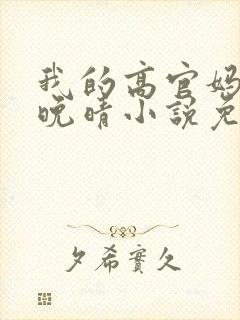 我的高官妈
晚晴小说免
夕希实久